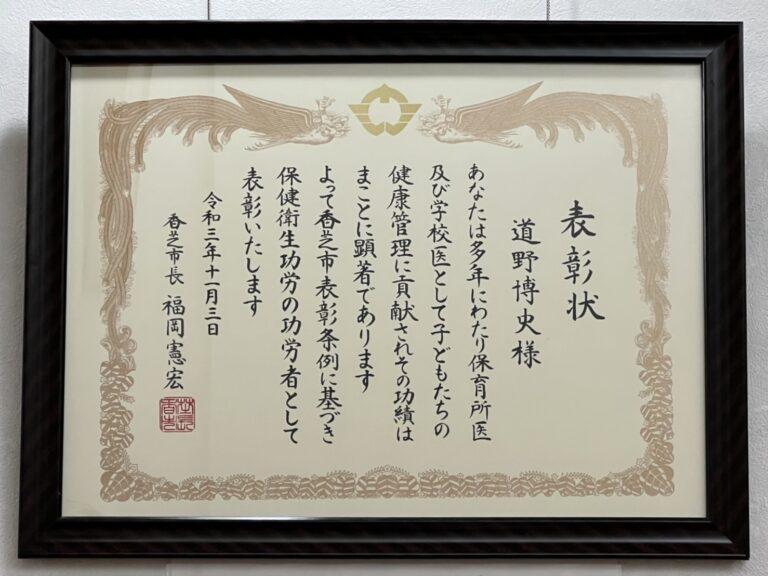 表彰状
道野博史様
あなたは多年にわたり保育所医
及び学校医として子どもたちの
健康管理に貢献されその功績は
まことに顕著であります
よって香芝市表彰条例に基づき
保健衛生功労の功労者として
表彰いたします
令和三年十一月三日
香芝市長 福岡憲宏